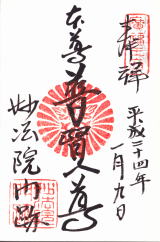 奉拝
平成二十四年
一月九日
本尊普賢大尊
妙法院門跡